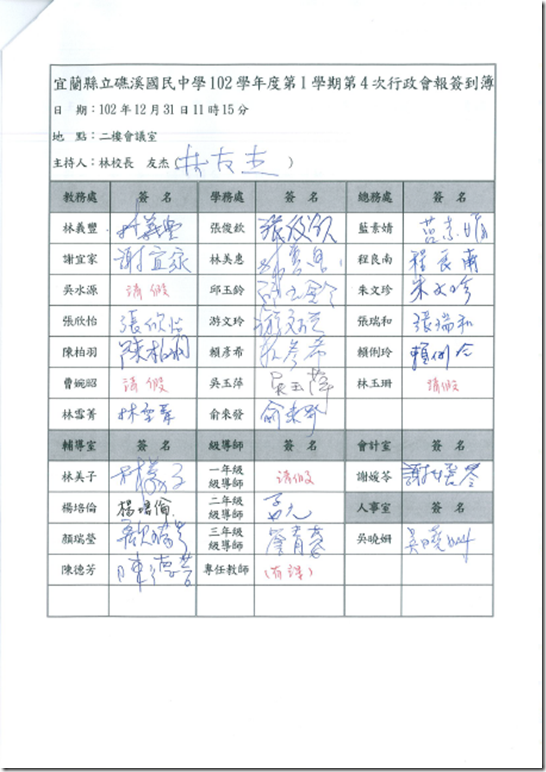 宜蘭縣立礁溪國民中學102學年度第1學期第4次行政會報簽到簿
日 期：102年12月31日11時15分
地 點：二樓會議室
主持人：林校長 友杰（林友杰）
教務處 簽 名 學務處 簽 名 總務處 簽 名
林義豐 林義豐 張俊欽 張俊欽 藍素婧 藍素婧
謝宜家 謝宜家 林美惠 林美惠 程良南 程良南
吳水源 請假 邱玉鈴 邱玉鈴 朱文珍 朱文珍
張欣怡 張欣怡 游文玲 游文玲 張瑞和 張瑞和
陳柏羽 陳柏羽 賴彥希 賴彥希 賴俐玲 賴俐令
曹婉昭 請假 吳玉萍 吳玉萍 林玉珊 請假
林雪菁 林雪菁 俞來發 俞來發
輔導室 簽 名 級導師 簽 名 會計室 簽 名
林美子 林美子 一年級級導師 請假 謝媛苓 謝媛苓
楊培倫 楊培倫 二年級級導師 人事室 簽 名
顏瑞瑩 顏瑞瑩 三年級級導師 吳曉姍 吳曉姍
陳德芳 陳德芳 專任教師 (有課)